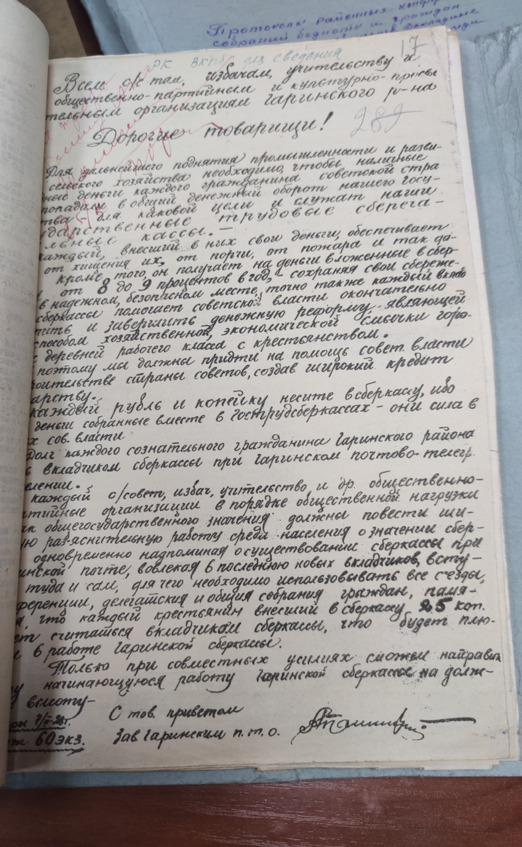 Протоколы районных конфер
собраний бедноты и граждан
РК ВКП/б/ для сведения
17
Всем о/с там, избачам, учительству и
общественно-партийным и культурно-просве
тительным организациям Гаринского р-на
282
Дорогие товарищи!
Для дальнейшего поднятия промышленности и разви-
сельского хозяйства необходимо, чтобы наличные
ные деньги каждого гражданина советской стра
попадали в общий денежный оборот нашего госу-
ства для каковой цели и служат наши
дарственные трудовые сберега-
льные кассы.-
каждый, внесший в них свои деньги, обеспечивает
от хищения их, от порчи, от пожара и так да-
кроме, того, он получает на деньги вложенные в сбер-
от 8 до 9 процентов в год,- сохраняя свои сбереже-
в надежном, безопасном месте, точно также каждый вклад
сберкассы помогает советской власти окончательно
пить и завершить денежную реформу являющей
способом хозяйственной, экономической смычки горо-
с деревней рабочего класса с крестьянством.
поэтому мы должны придти на помощь совет. власти
роительстве страны советов, создав широкий кредит
дарству.
каждый рубль и копейку несите в сберкассу, ибо
деньги собранные вместе в Гострудсберкассах - они сила в
х сов. власти
долг каждого сознательного гражданина Гаринского района
ь вкладчиком сберкассы при Гаринском почтово-телегр.
елении.
каждый о/совет, избач, учительство и др. общественно-
ртийные организации в порядке общественной нагрузки
ак общегосударственного значения должны повести ши-
ую раз'яснительную работу среди населения о значении сбер-
одновременно надпоминая о существовании сберкассы при
инской почте, вовлекая в последнюю новых вкладчиков, всту-
туда и сам, для чего необходимо использовать все с'езды,
ференции, делегатския и общия собрания граждан, памя-
я, что каждый крестьянин внесший в сберкассу 25 коп.
ет считаться вкладчиком сберкассы, что будет плю-
м в работе Гаринской сберкассы.
Только при совместных усилиях сможем направить
у начинающуюся работу Гаринской сберкассы на долж-
у высоту-
С тов. приветом
Зав Гаринским п.т.о.
ж 60 экз.